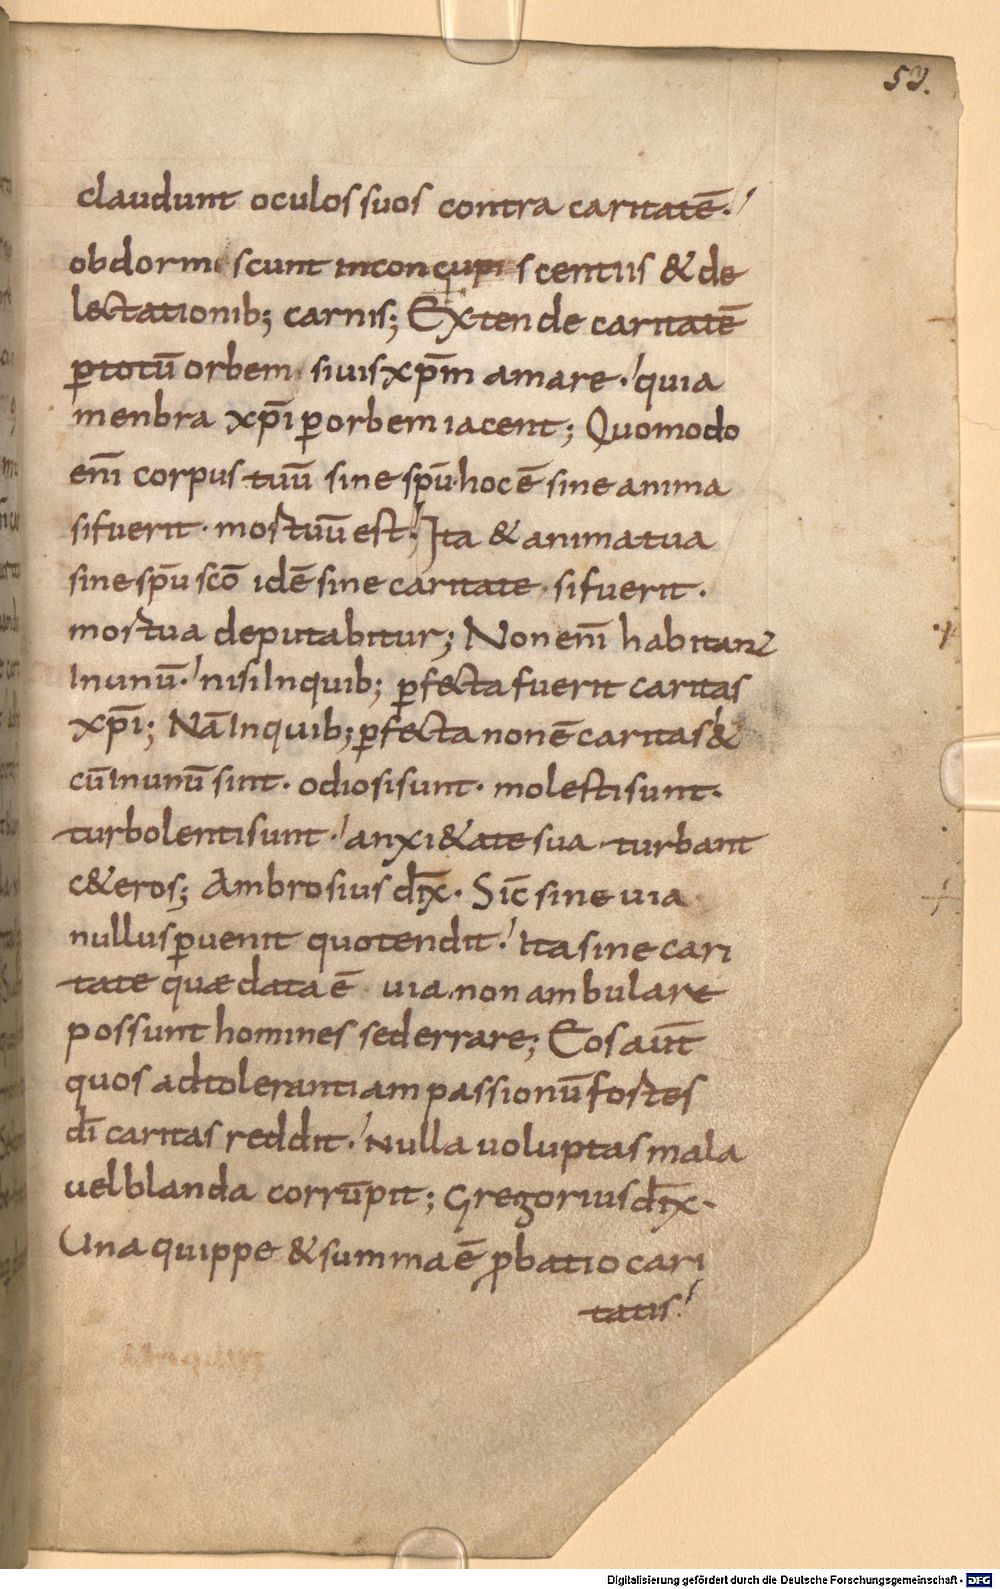 53.
claudunt oculos suos contra caritatē.
obdormiscunt in concupiscentiis & de
lectationib; carnis; Extende caritatē
ꝑ totū orbem si uis xp̄m amare. quia
menbra xp̄i ꝑ orbem iacent; Quomodo
eni̅ corpus tuū sine spū. hoc ē sine anima
si fuerit. mortuū est. Ita & anima tua
sine spū sc̄o idē sine caritate. si fuerit.
mortua deputabitur; Non eni̅ habitant
In unū. nisi In quib; ꝑfecta fuerit caritas
xp̄i; Nā In quib; ꝑfecta non ē caritas &
cū In unū sint. odiosi sunt. molesti sunt.
turbolenti sunt. anxi&ate sua turbant
c&eros; Ambrosius dix̄. Sic̄ sine uia
nullus ꝑuenit quo tendit. Ita sine cari
tate quae data ē uia. non ambulare
possunt homines sed errare; Eos aut̄
quos ad tolerantiam passionū fortes
dī caritas reddit. Nulla uoluptas mala
uel blanda corrūpit; Gregorius dix̄.
Una quippe & summa ē ꝓbatio cari
tatis.
Digitalisierung gefördert durch die Deutsche Forschungsgemeinschaft - DFG